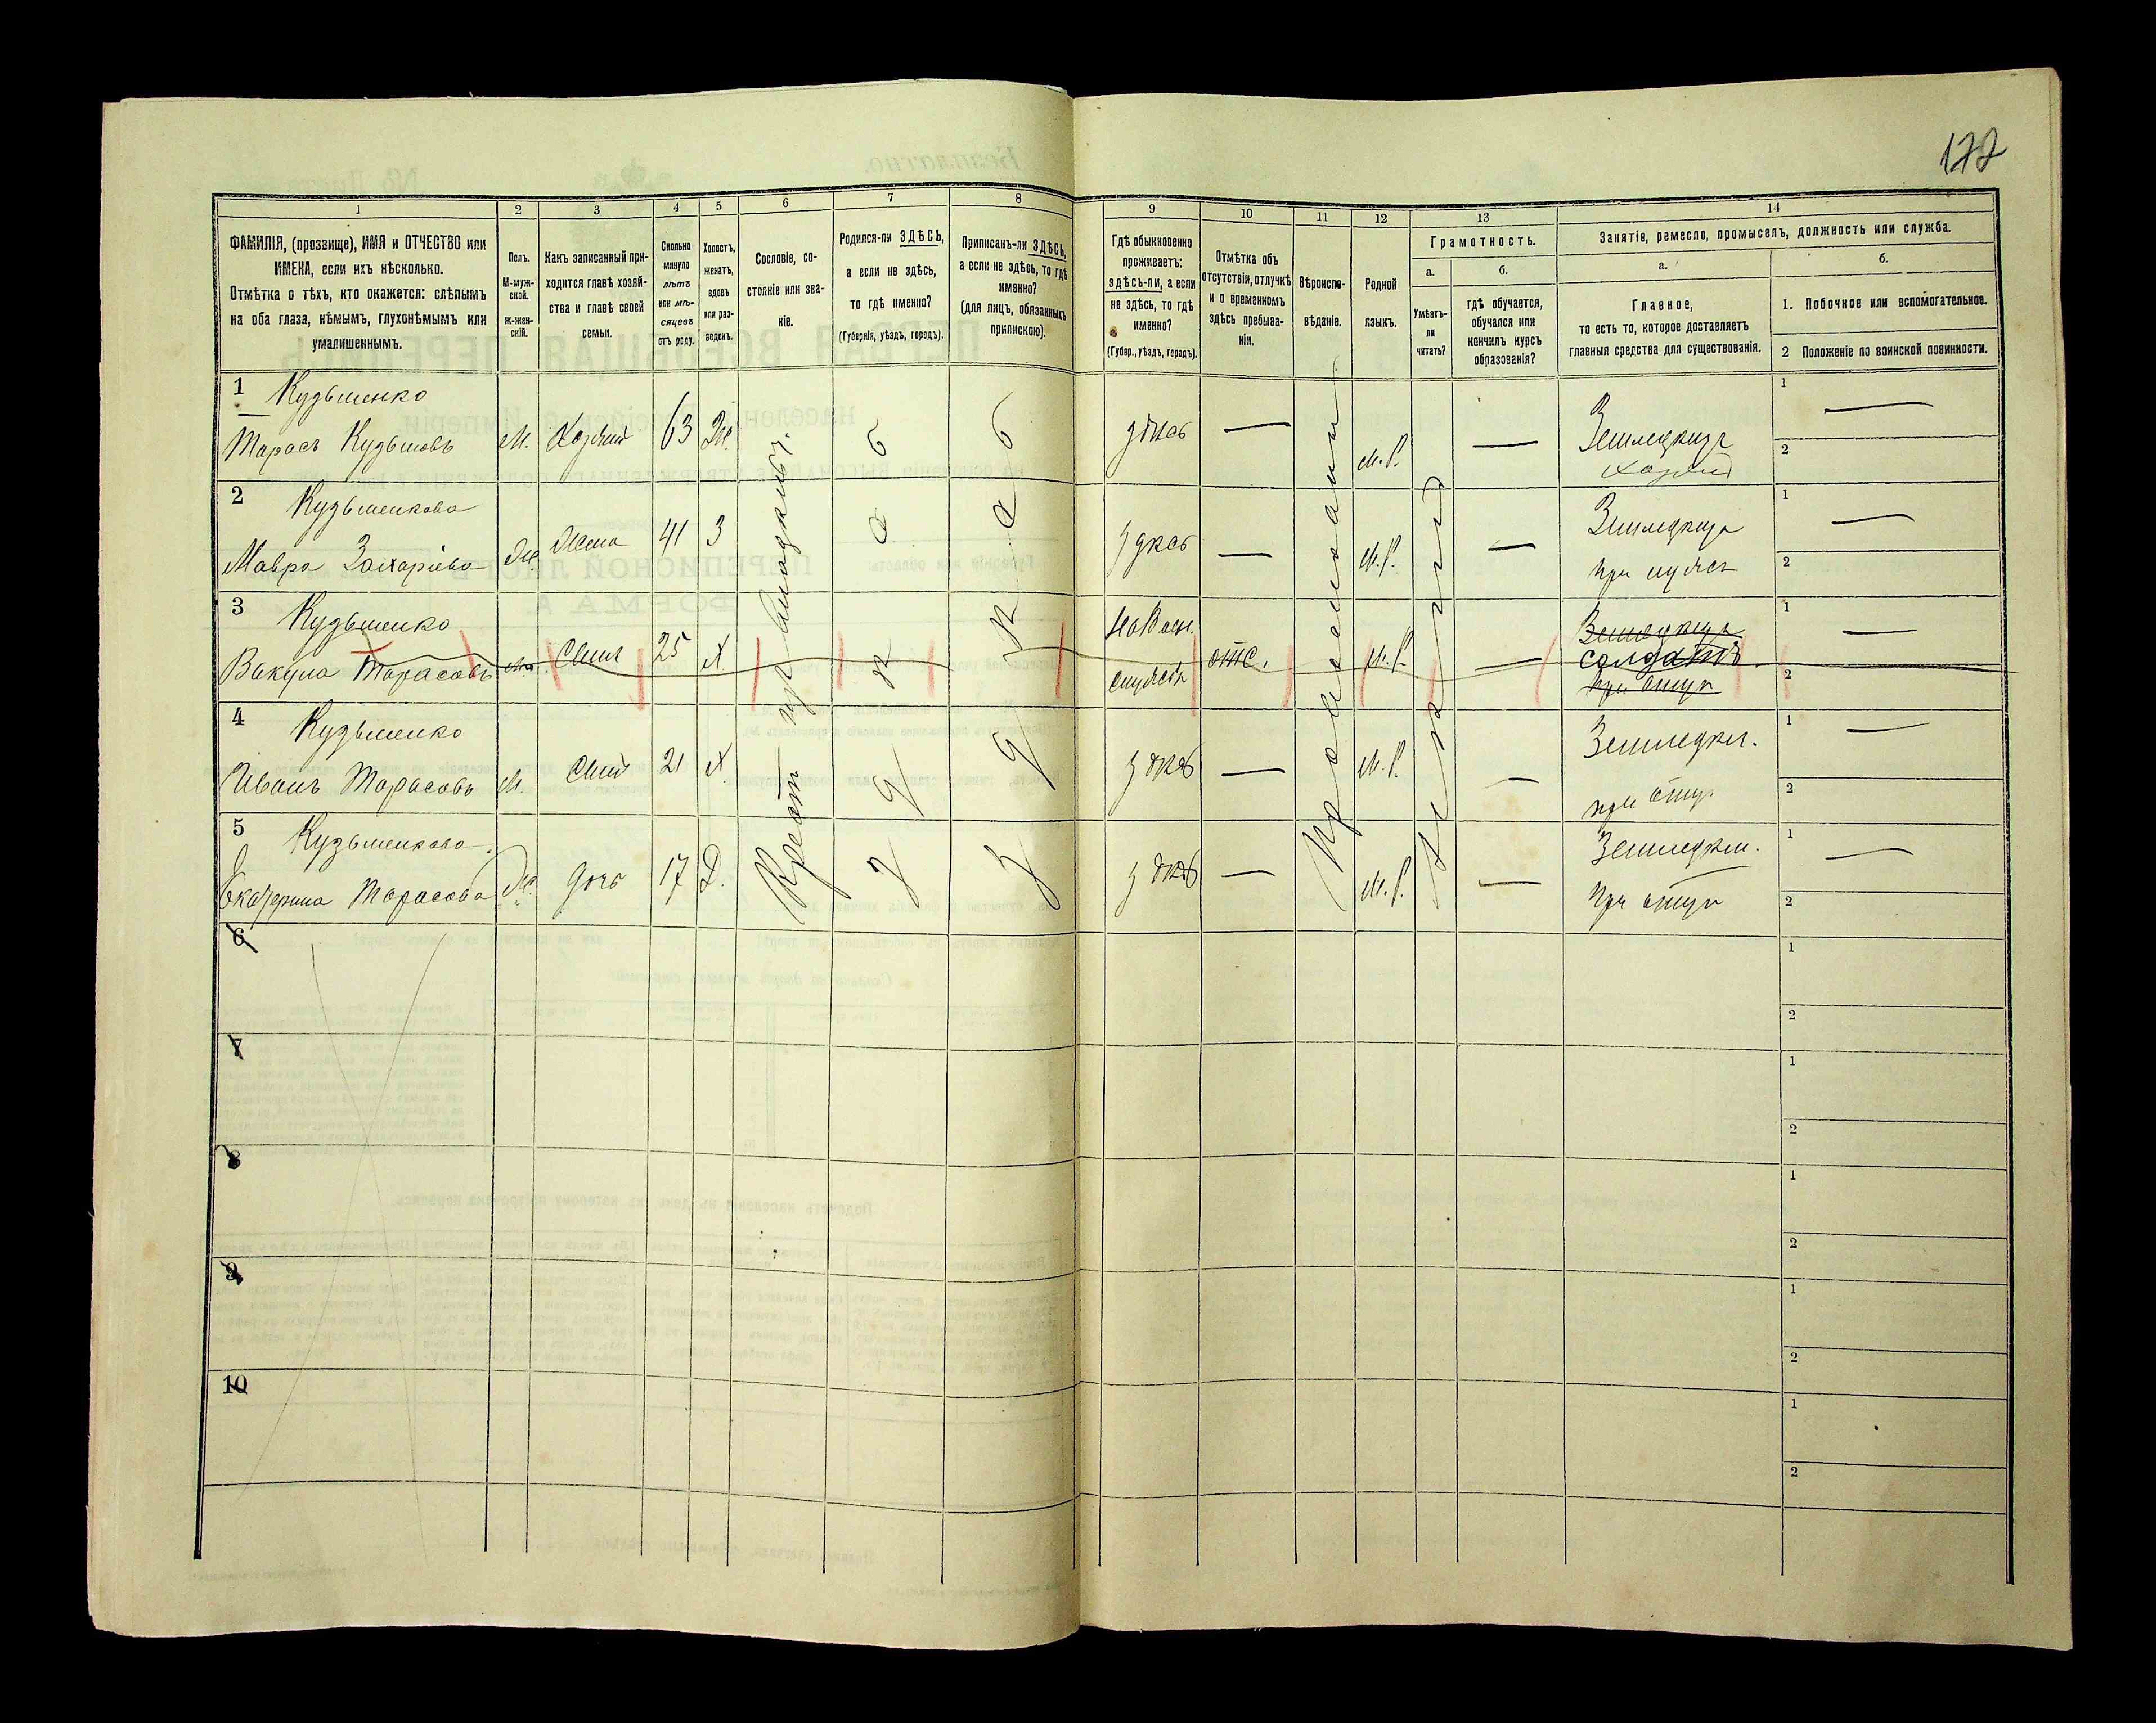 177
1
2
3
4
5
6
7
8
9
10
11
12
13
14
ФАМИЛІЯ, (прозвище), ИМЯ и ОТЧЕСТВО или
ИМЕНА, если ихъ нѣсколько.
Отмѣтка о тѣхъ, кто окажется: слѣпымъ
на оба глаза, нѣмымъ, глухонѣмымъ или
умалишеннымъ.
Полъ.
М-муж-
ской.
Ж-жен-
скій.
Какъ записанный при-
ходится главѣ хозяй-
ства и главѣ своей
семьи.
Сколько
минуло
лѣтъ
или мѣ-
сяцевъ
отъ роду.
Холостъ,
женатъ,
вдовъ
или раз-
веденъ.
Сословіе, со-
стояніе или зва-
ніе.
Родился-ли ЗДѢСЬ,
а если не здѣсь,
то гдѣ именно?
(Губернія, уѣздъ, городъ).
Приписанъ-ли ЗДѢСЬ,
а если не здѣсь, то гдѣ
именно?
(для лицъ, обязанныхъ
припискою).
Гдѣ обыкновенно
проживаетъ:
здѣсь-ли, а если
не здѣсь, то гдѣ
именно?
(Губер., уѣздъ, городъ).
Отмѣтка объ
отсутствіи, отлучкѣ
и о временномъ
здѣсь пребыва-
ніи.
Вѣроиспо-
вѣданіе.
Родной
языкъ.
Грамотность.
а.
б.
Умѣетъ-
ли
читать?
гдѣ обучается,
обучался или
кончилъ курсъ
образованія?
Занятіе, ремесло, промыселъ, должность или служба.
а.
б.
Главное,
то есть то, которое доставляетъ
главныя средства для существованія.
1. Побочное или вспомогательное.
2 Положеніе по воинской повинности.
1 Кузьменко
Тарасъ Кузьмовъ М. Хозяинъ 63 Ж. здѣсь — М.Р. — Землед
хозяинъ
1 —
2
2 Кузьменкова
Мавра Захарiева Ж. Жена 41 З здѣсь — М.Р. —
при мужѣ
1 —
2
3 Кузьменко
Вакула Тарасовъ М. Сынъ 25 Х отс. М.Р. —
солдатъ
при отцѣ
1 —
2
4 Кузьменко
Иванъ Тарасовъ М. Сынъ 21 Х. здѣсь — М.Р. — Земледѣл.
при отцѣ
1 —
2
5 Кузьменкова
Екатерина Тарасова Ж. дочь 17 Д. здѣсь — М.Р. — Земледѣл.
при отцѣ
1 —
2
Крест. изъ
здѣсь
здѣсь
Православный
6
1
2
7
1
2
8
1
2
9
1
2
10
1
2